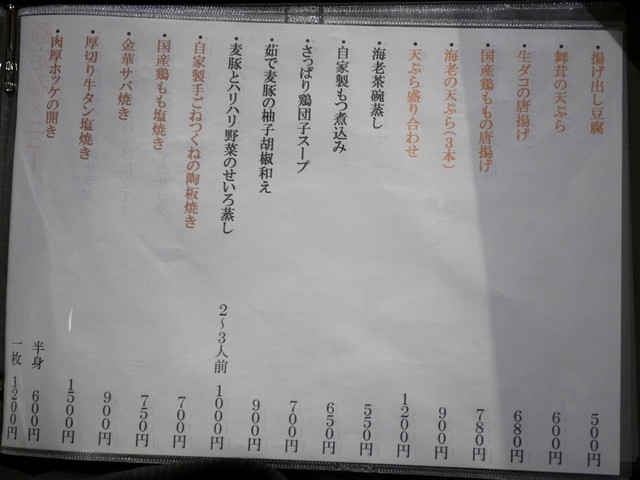 ・揚げ出し豆腐 500円
・舞茸の天ぷら 600円
・生ダコの唐揚げ 680円
・国産鶏ももの唐揚げ 780円
・海老の天ぷら(3本) 900円
・天ぷら盛り合わせ 1200円
・海老茶碗蒸し 550円
・自家製もつ煮込み 650円
・さっぱり鶏団子スープ 700円
・茹で麦豚の柚子胡椒和え 900円
・麦豚とハリハリ野菜のせいろ蒸し 2~3人前 1000円
・自家製手ごねつくねの陶板焼き 700円
・国産鶏もも塩焼き 750円
・金華サバ焼き 900円
・厚切り牛タン塩焼き 1500円
・肉厚ホッケの開き 半身 600円
一枚 1200円